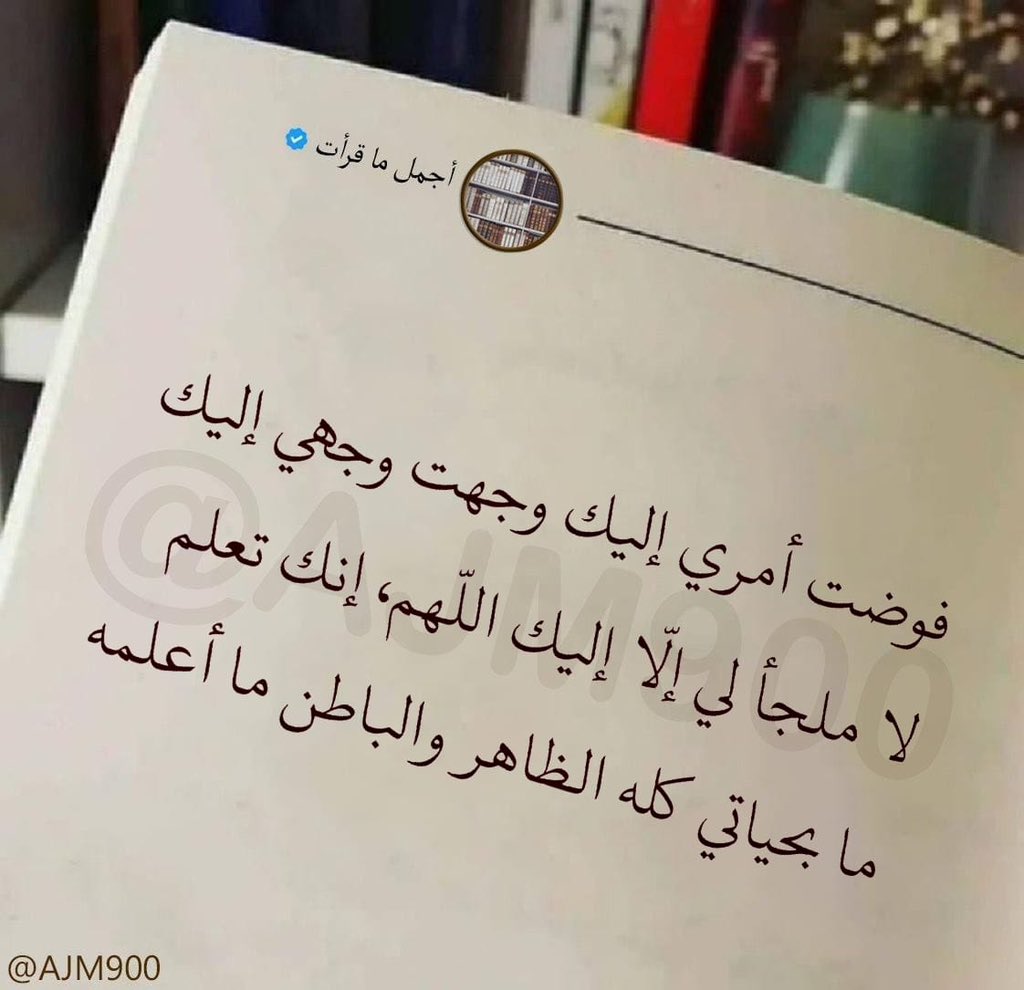 أجمل ما قرأت
فوضت أمري إليك وجهت وجهي إليك
لا ملجأ لي إلّا إليك اللّهم، إنك تعلم
ما بحياتي كله الظاهر والباطن ما أعلمه
@AJM900
@AJM900